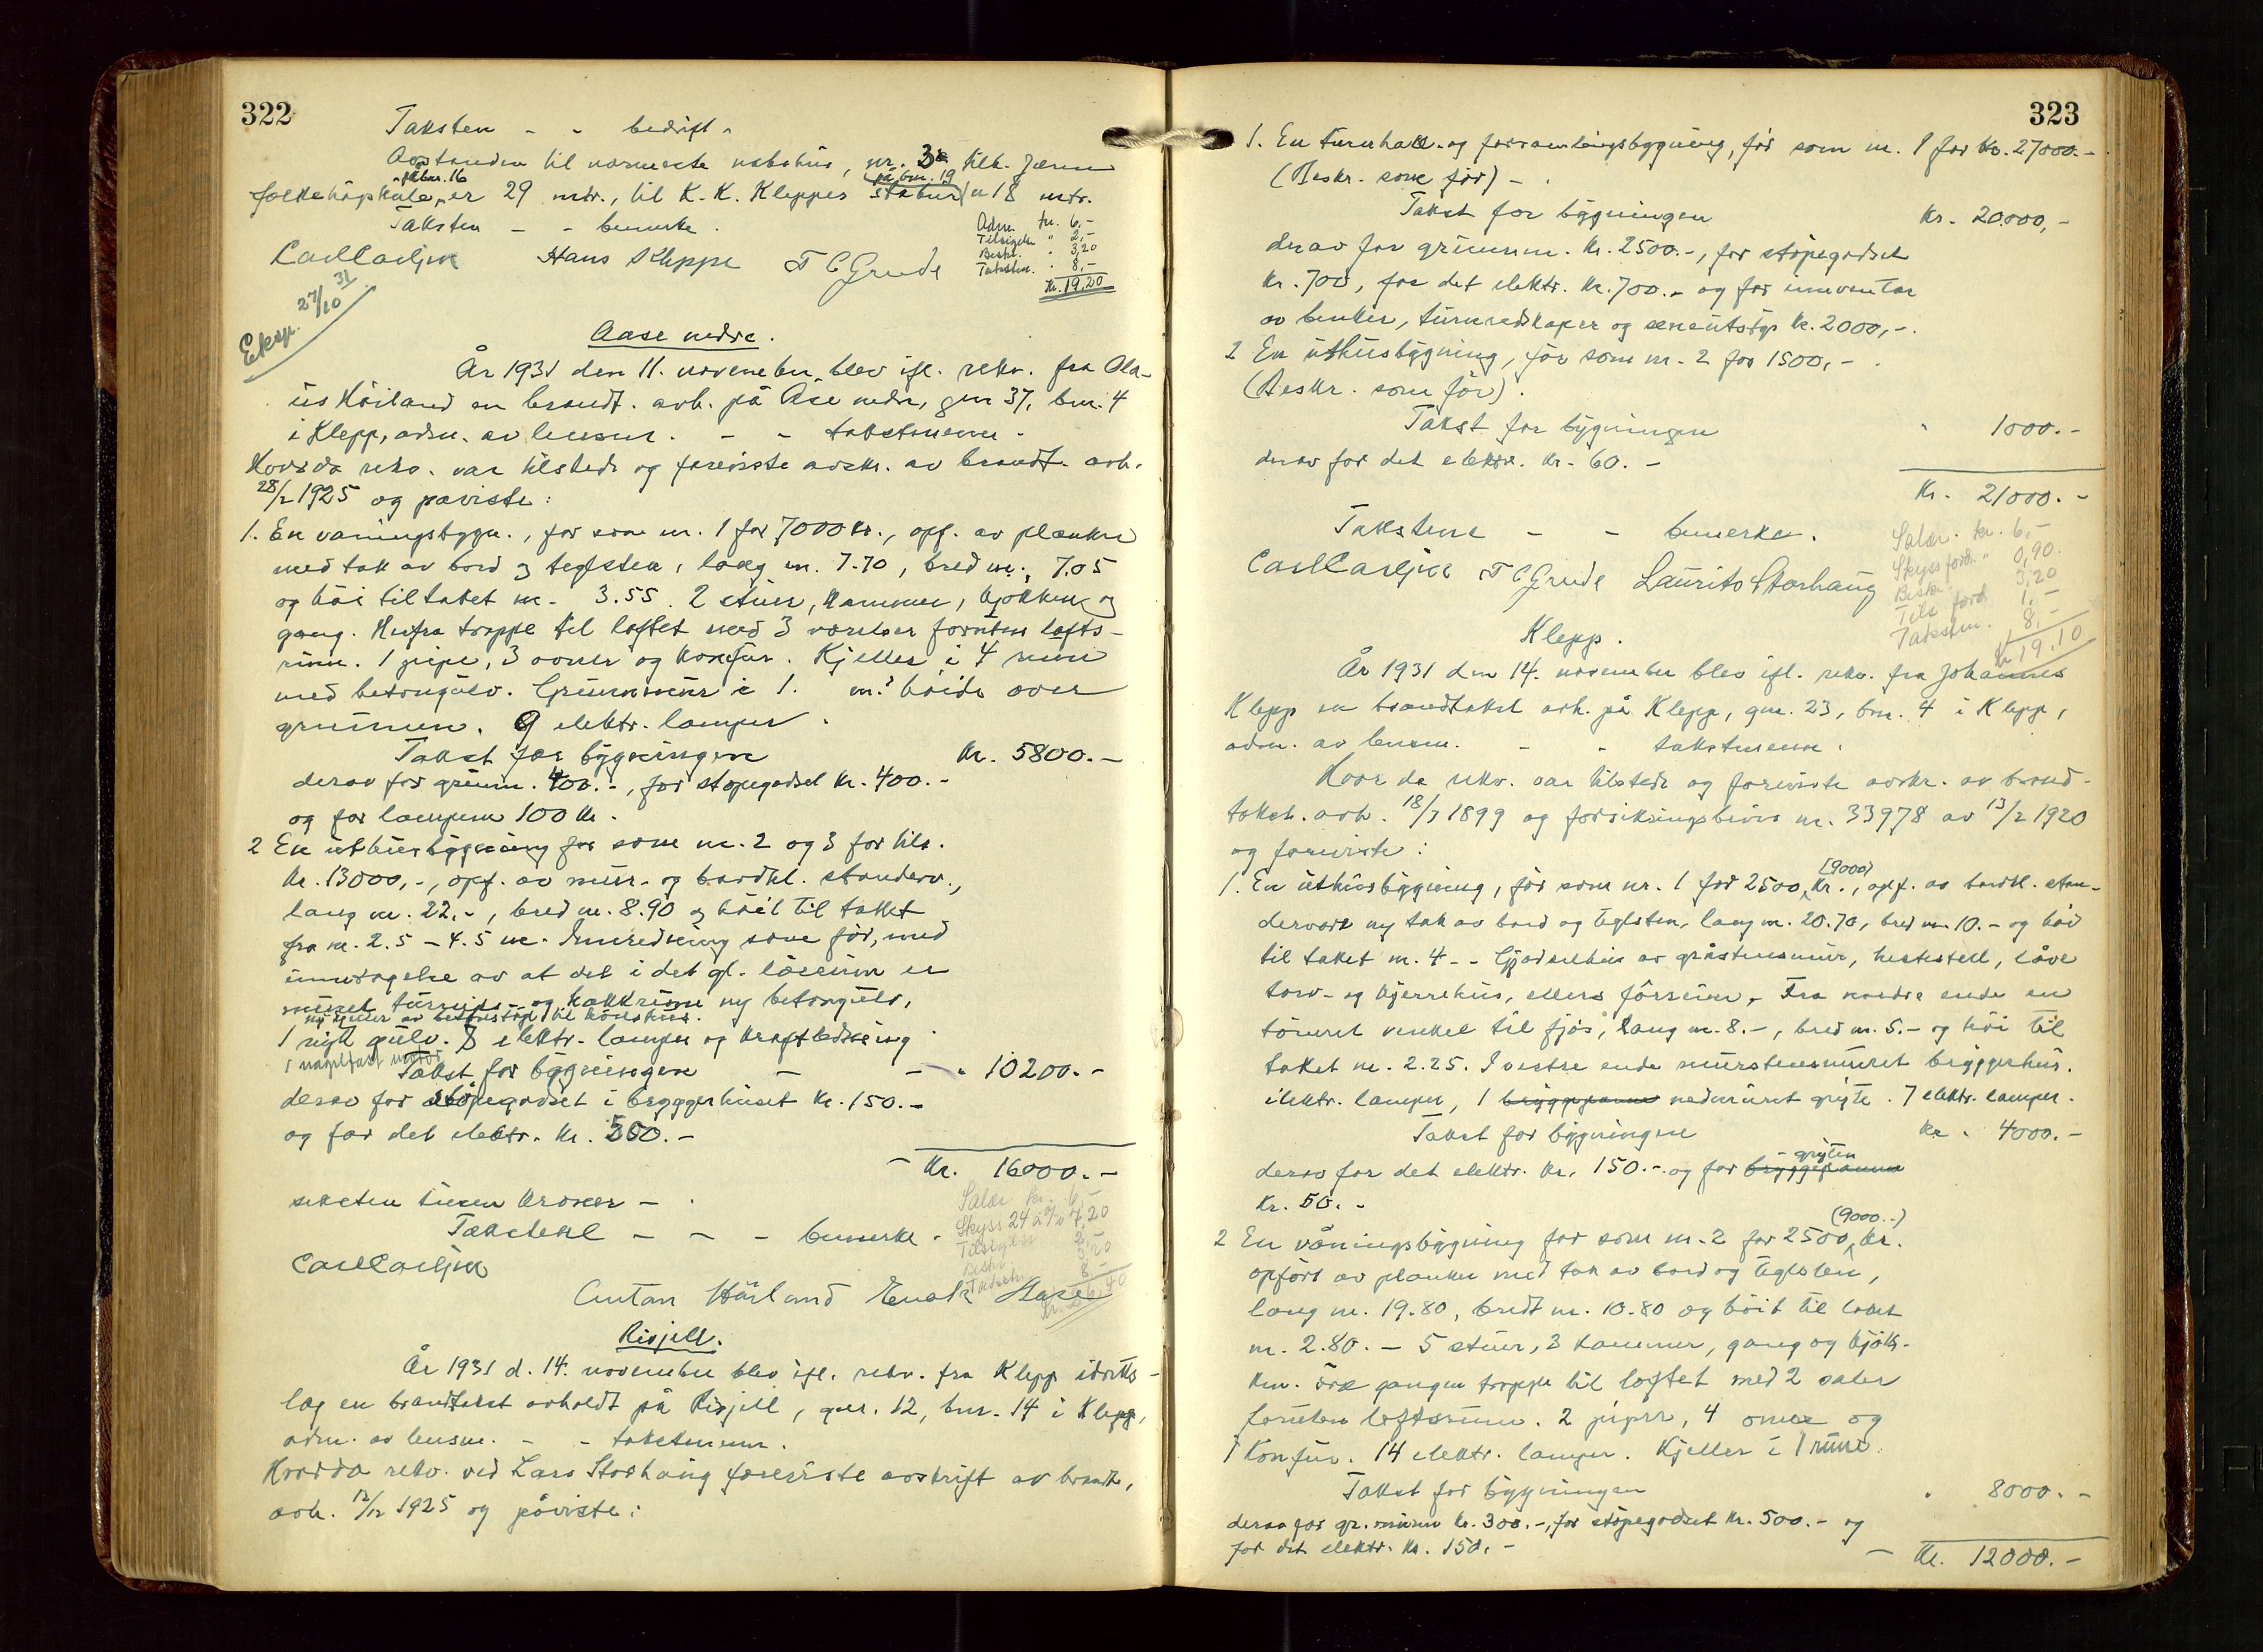 322
Taksten - - bedrift -
Avstanden til nærmeste nabohus, nr. 3 tilh. Jæren
på bnr. 16
(på bnr. 19
folkehøgskule, er 29 mtr., til K. K. Kleppes stabur) er 18 mtr.
Taksten - - bemerke.
Adm. kr. 6,-
Tilsigelse " 2,-
Beskr. " 3,20
Takstm. " 8,-
kr. 19,20
Carl Carljsen Hans Kleppe T C Grude
Eksp. 27/10 31
Aase nedre.
År 1931 den 11. november blev ifl. rekv. fra Ola-
us Höiland en brandt. avh. på Åse nedre, gnr 37, bnr. 4
i Klepp, adm. av lensm. - - takstmenn -
Hvorda rekv. var tilstede og foreviste avskr. av brandt. avh.
28/2 1925 og paviste:
1. En vaningsbygn., før som nr. 1 for 7000 kr., opf. av planker
med tak av bord og teglsten, lang m. 7.70, bred m. 7,05
og höi til taket m. 3.55. 2 stuer, kammer, kjøkken og
gang. Herfra troppe til loftet med 3 værelser foruten lofts-
rum. 1 pipe, 3 ovner og komfur. Kjeller i 4 rum
med betongulv. Grunnmur i 1. m.s höide over
grunnen. 9 elektr. lamper.
Takst for bygningen kr. 5800.-
derav for grunm. 400.-, for stöpegodset kr. 400.-
og for lampene 100 kr.
2 En uthusbygning før som nr. 2 og 3 for tils.
kr. 13000,-, opf. av mur- og bordkl. stenderv.,
lang m. 22.-, bred m. 8.90 og höit til taket
fra m. 2.5 - 4.5 m. Innredning som før, med
unntagelse av at det i det gl. löerum er
muret turnips- og hakkrum ny betongulv,
ny mur av betonstöp til höneshus.
1 nyt gulv. 8 elektr. lamper og kraftledning
1 nagelfast motor
Takst for bygningen - - " 10200.-
derav for stöpegodset i bryggerhuset kr. 150.-
og for det elektr. kr. 350.-
- kr. 16000.-
seksten tusen kroner - .
Takstene - - - bemerke.
Salær kr. 6,-
Skyss 24 à 7,20
Tilsigelse 2,-
Beskr. 3,20
Takstm. 8,-
Carl Carljsen
Antan Hårland Enok Aase
Risjell.
År 1931 d. 14. november blev ifl. rekv. fra Klepp idretts-
lag en brandtakst avholdt på Risjell, gnr. 12, bnr. 14 i Klepp,
adm. av lensm. - - takstmenn.
Hvorda rekv. ved Lars Storhaug foreviste avskrift av brandt.
avh. 12/12 1925 og påviste:
323
1. En turnhall- og forsamlingsbygning, før som nr. 1 for kr. 27000.-
(Beskr. som før) - .
Takst for bygningen kr. 20.000,-
derav for grunnm. kr. 2500.-, for støpegodset
kr. 700, for det elektr. kr. 700.- og for inventar
av benker, turnredskaper og cementstøp kr. 2000,-.
2 En uthusbygning, før som nr. 2 for 1500,- .
(Beskr. som før).
Takst for bygningen " 1000.-
derav for det elektr. kr. 60.-
kr. 21000.-
Takstene - - bemerke.
Salær. kr. 6,-
Skyss ford. " 0,90.
Beskr. 3,20
Tils. ford. 1,-
Takstm. 8,-
kr 19.10
Carl Carljsen T C Grude Laurits Storhaug
Klepp.
År 1931 den 14. november blev ifl. rekv. fra Johannes
Klepp en brandtakst avh. på Klepp, gnr. 23, bnr. 4 i Klepp,
adm. av lensm. - - takstmenn.
Hvor da rekv. var tilstede og foreviste avskr. av brand-
takst. avh. 18/7 1899 og forsikringsbevis nr. 33978 av 13/2 1920
og foreviste:
(9000)
1. En uthusbygning, før som nr. 1 for 2500 kr., opf. av bordkl. sten-
derverk ny tak av bord og teglsten, lang m. 20.70, bred m. 10.- og höi
til taket m. 4.- Gjødselhus av gråstensmur, hestestell, låve
torv- og kjerrehus, ellers fôrrum. Fra nordre ende en
tömret vinkel til fjøs, lang m. 8.-, bred m. 5.- og höi til
taket m. 2.25. I vestre ende murstensmuret bryggerhus.
elektr. lamper, 1 bryggepanne nedmuret gryte. 7 elektr. lamper.
Takst for bygningen kr. 4000.-
gryten
derav for det elektr. kr. 150.- og for bryggepanne
kr. 50.-
(9000.-)
2 En våningsbygning før som nr. 2 for 2500 kr.
opført av planker med tak av bord og teglsten,
lang m. 19.80, bredt m. 10.80 og höit til taket
m. 2.80. - 5 stuer, 3 kammer, gang og kjök-
ken. Fra gangen troppe til loftet med 2 saler
foruten loftsrum. 2 piper, 4 ovner og
1 Komfur. 14 elektr. lamper. Kjeller i 1 rum.
Takst for bygningen " 8000.-
derav for gr. muren kr. 300.-, for støpegodset kr. 500.- og
for det elektr. kr. 150.-
- kr. 12000.-